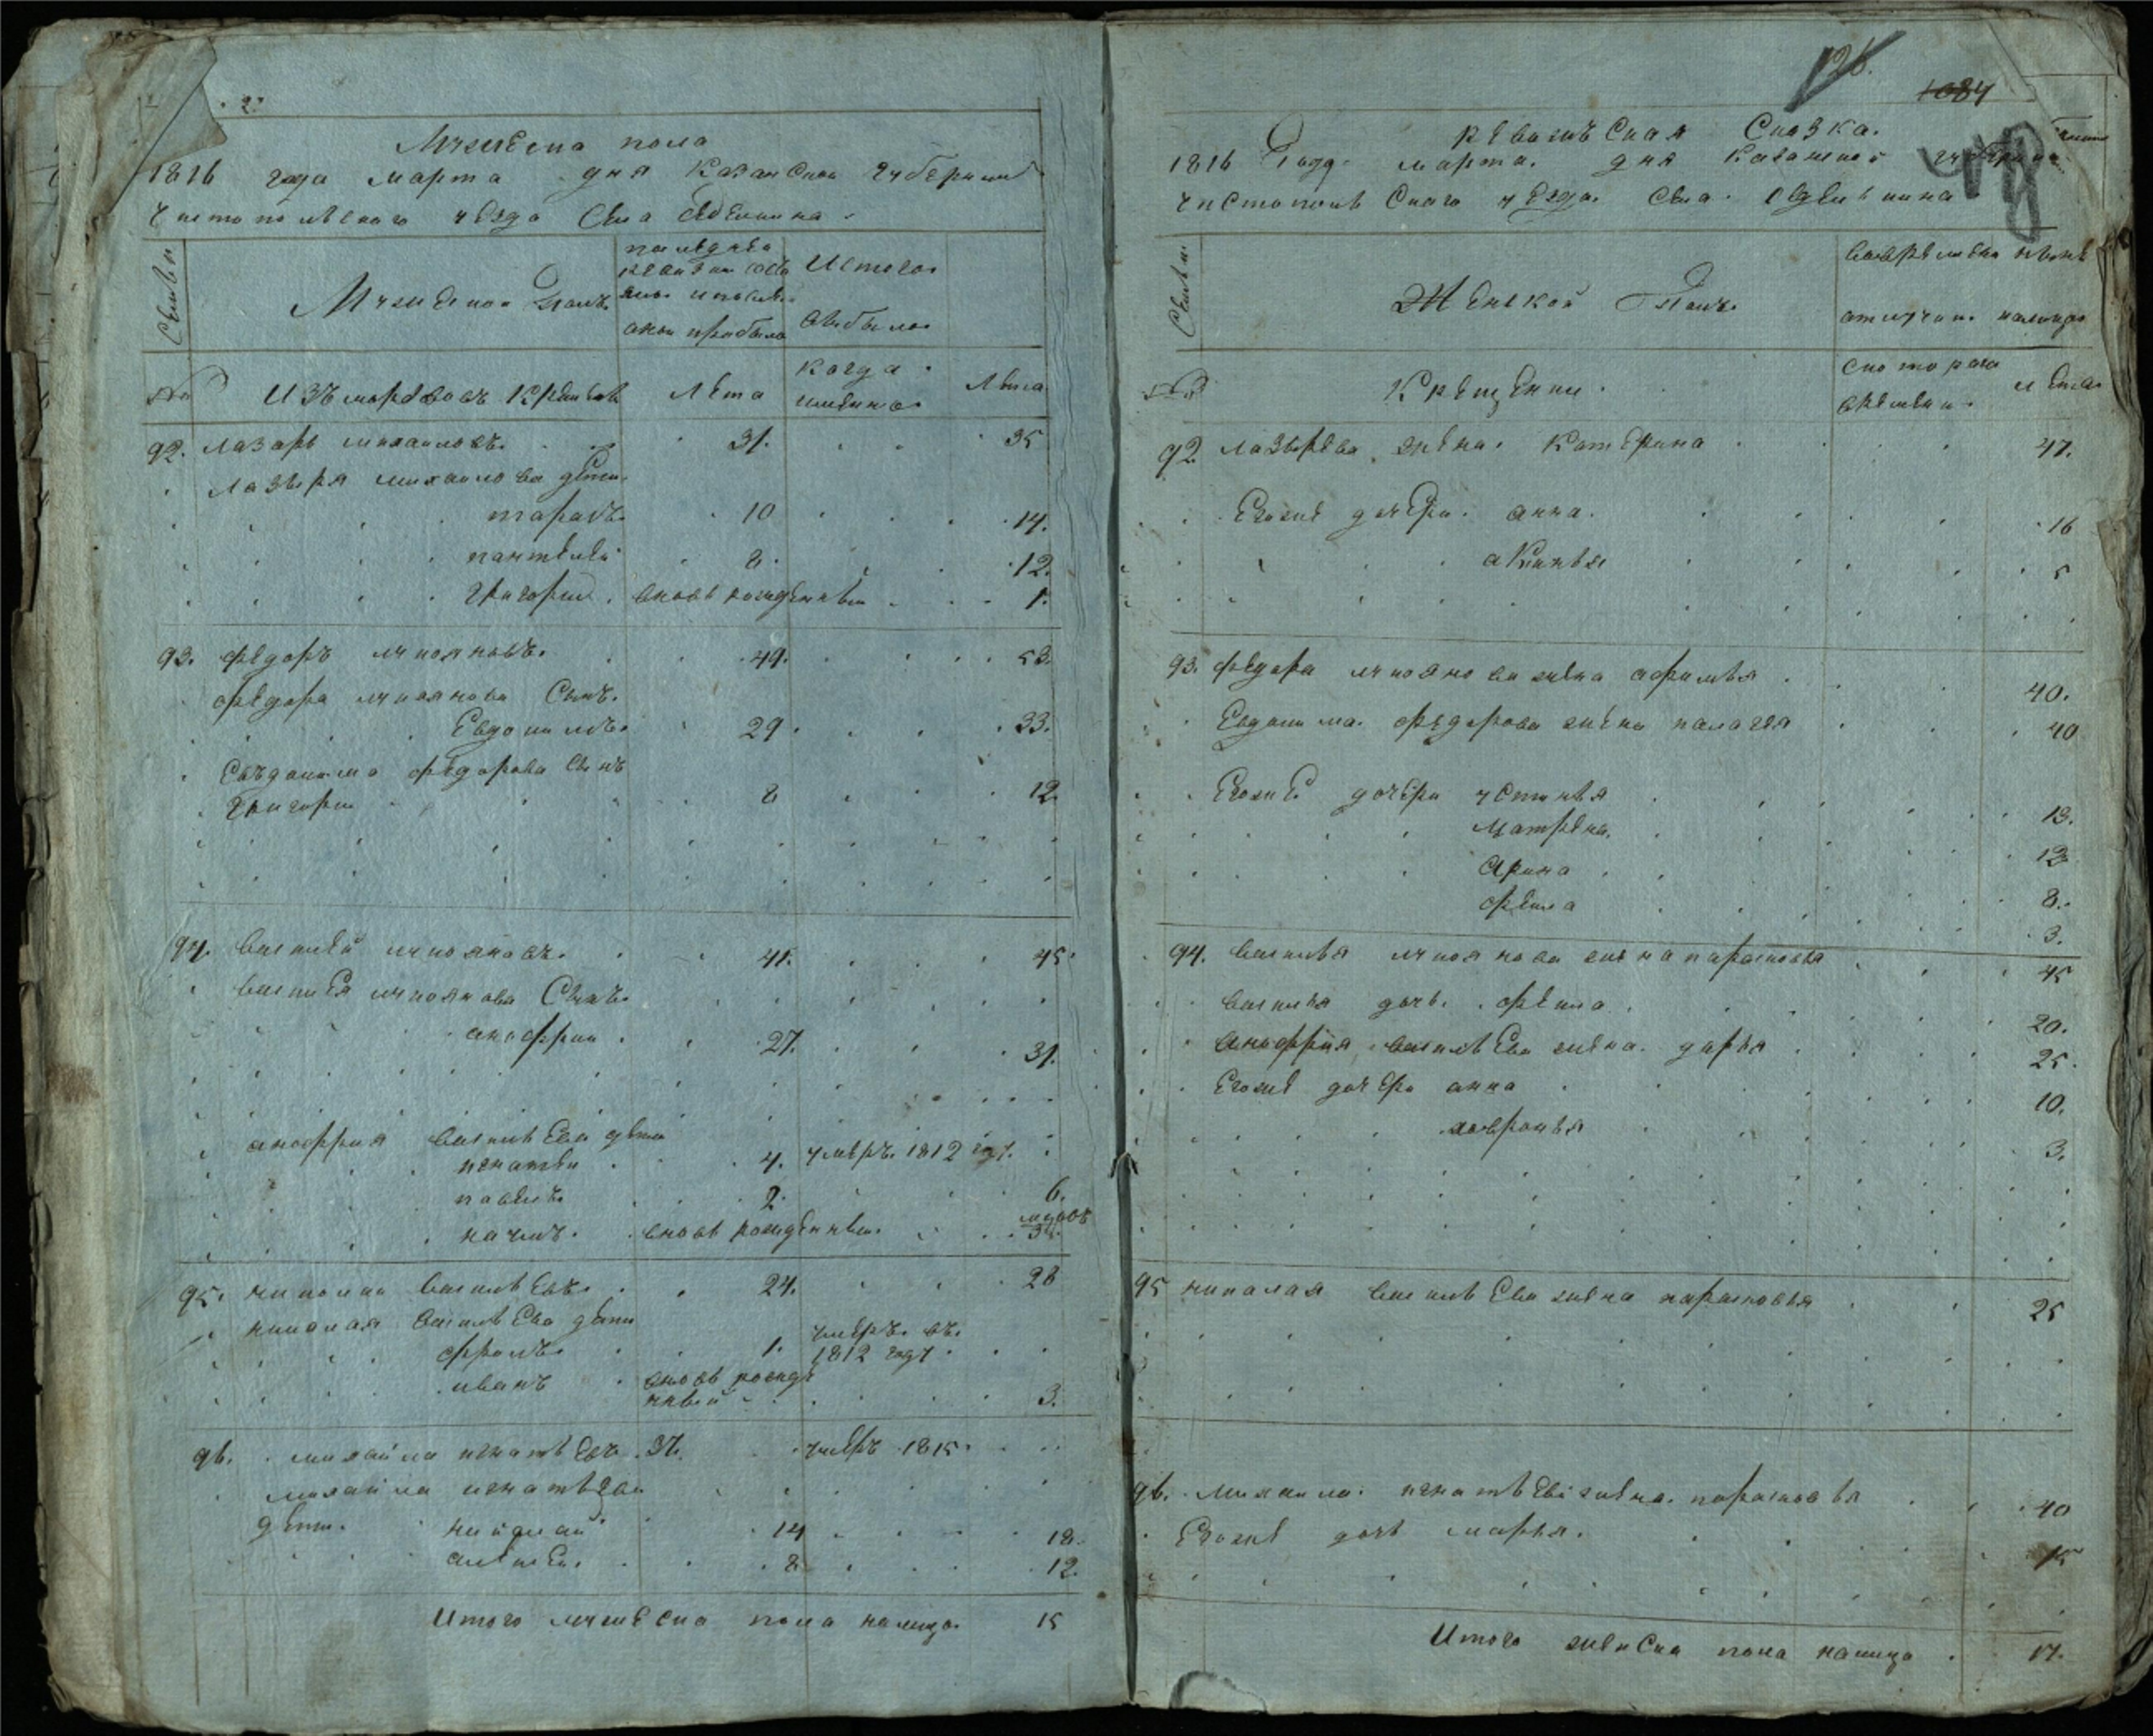 Мужеска пола
1816 года марта дня Казанской губернии
Чистопольского уезда Села
Семьи
Мужеской полъ
последней
ревизии состо
яло и после
оной прибыло
Истого
выбыло
№
Изъ мордвовъ крещеныхъ
Лета
когда
имянно
Лета
92. лазарь михаиловъ. 31. 35
лазаря михаилова дети
тарасъ 10 14.
пантелей 8. 12.
григорей вновь рожденный 1.
93. федоръ лукояновъ. 49. 53.
федора лукоянова сынъ.
Евдокимъ 29. 33.
Евъдокима федорова сынъ
григорей 8 12.
94. василей лукояновъ. 41. 45.
василья лукоянова Сынъ
анофрей 27. 31.
анофрия васильева дети
игнатей 4. умеръ. 1812 году.
павелъ 2. 6.
наумъ. вновь рожденный.
95. николай васильевъ. 24. 28
николая васильева дети
фролъ 1. умеръ. въ.
1812 году
иванъ вновь рожде
нный 3.
96. михайла игнатьевъ 37. умеръ 1815.
михайла игнатьева
дети. николай 14 18.
алексей 8 12.
Итого мужеска пола налицо 15
126.
1084
Ревизьская Сказка.
1816 Года марта. дня Казанской губернии
чистопольскаго уезда. Села.
Семьи
Женской Полъ.
во временной
отлучке.
налицо
№
Крещении.
с которого
времени.
лета
92 лазырева жена. Катерина 47.
Егоже дочери. анна. 16
акинья 5
93. федора лукоянова жена афимья 40.
Евдокима. федорова жена палагея 40
Егоже дочери устинья 13.
Матрена. 12
Арина 8.
фекла 3.
94. василья лукоянова жена парасковья 45
василья дочь. фекла. 20.
Анофрия васильева жена. дарья 25.
Егоже дочери анна 10.
хавронья 3.
95 николая васильева жена парасковья 25
96. михаила. игнатьева жена. парасковья 40
Егоже дочь марья. 15
Итого женска пола налицо 17.